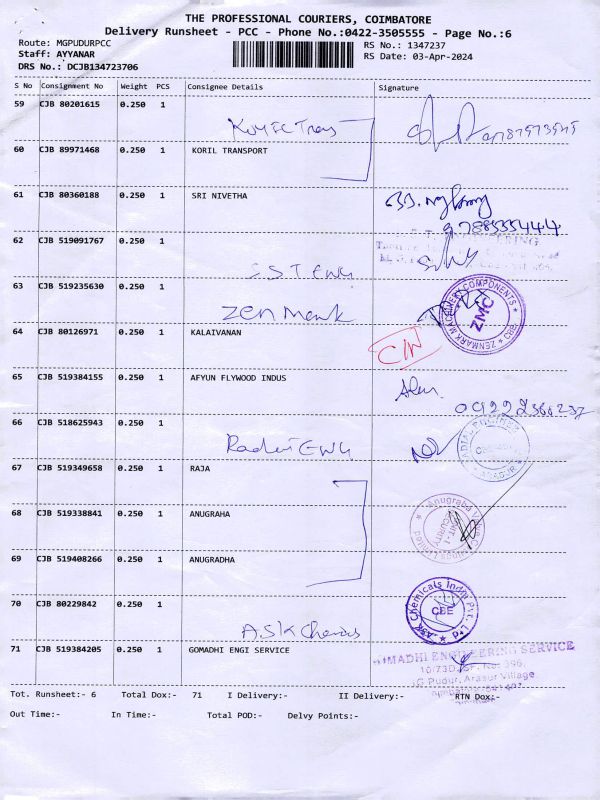 THE PROFESSIONAL COURIERS, COIMBATORE
Delivery Runsheet - PCC - Phone No.:0422-3505555 - Page No.:6
Route: MGPUDURPCC RS No.: 1347237
Staff: AYYANAR RS Date: 03-Apr-2024
DRS No.: DCJB134723706
S No Consignment No Weight PCS Consignee Details Signature
59 CJB 80201615 0.250 1
60 CJB 89971468 0.250 1 KORIL TRANSPORT
61 CJB 80360188 0.250 1 SRI NIVETHA
9788535444
62 CJB 519091767 0.250 1
SST ENG
63 CJB 519235630 0.250 1
Zen Mark
ZENMARK MACHINERY COMPONENTS
ZMC
CBE
64 CJB 80126971 0.250 1 KALAIVANAN
65 CJB 519384155 0.250 1 AFYUN FLYWOOD INDUS
66 CJB 518625943 0.250 1
67 CJB 519349658 0.250 1 RAJA
68 CJB 519338841 0.250 1 ANUGRAHA
69 CJB 519408266 0.250 1 ANUGRADHA
70 CJB 80229842 0.250 1
ASK
ASK Chemicals India Pvt. Ltd.
CBE
71 CJB 519384205 0.250 1 GOMADHI ENGI SERVICE
MADHI ENGINEERING SERVICE
G Pudur, Arasur Village
Tot. Runsheet:- 6 Total Dox:- 71 I Delivery:- II Delivery:- RTN Dox:-
Out Time:- In Time:- Total POD:- Delvy Points:-